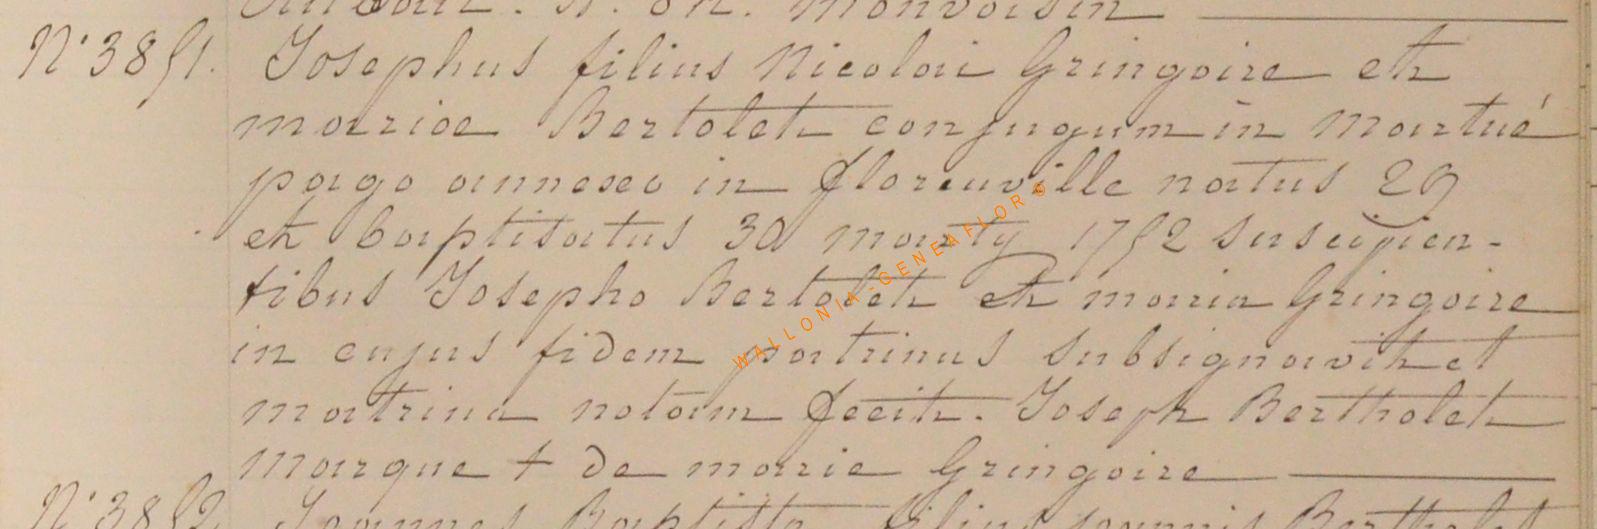 N° 3851. Josephus filius Nicolai Gringoire et
mariae Bertolet conjugum in Martué
pago annexo in florenville natus 29
et baptisatus 30 marty 1752 suscipien-
tibus Josepho Bertolet et maria Gringoire
in cujus fidem patrinus subsignavit et
matrina notam fecit. Joseph Bertholet
marque + de marie Gringoire
N° 3852 Joannes Baptista filius joannis Bertholet
WALLONIA-GENEAFLOR©